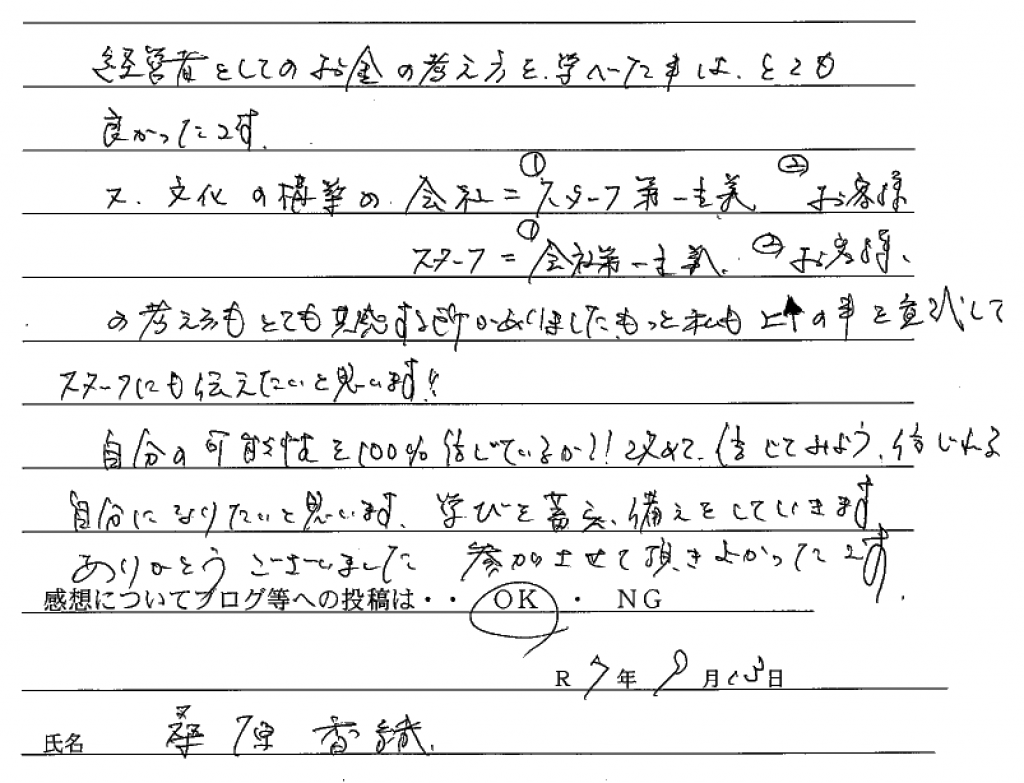 経営者としてのお金の考え方を、学べた事は、とても
良かったです。
又、文化の構築の、会社=①スタッフ第一主義 ②お客様
スタッフ=①会社第一主義、②お客様、
の考え方もとても共感する所がありましたもっと私も上↑の事を意識して
スタッフにも伝えたいと思います!!
自分の可能性を100%信じているか!!改めて、信じてみよう、信じれる
自分になりたいと思います、学びを蓄え、備えをしていきます
ありがとうございました 参加させて頂きよかったです。
感想についてブログ等への投稿は・・ OK ・ NG
R7年9月13日
氏名 桑原 香織